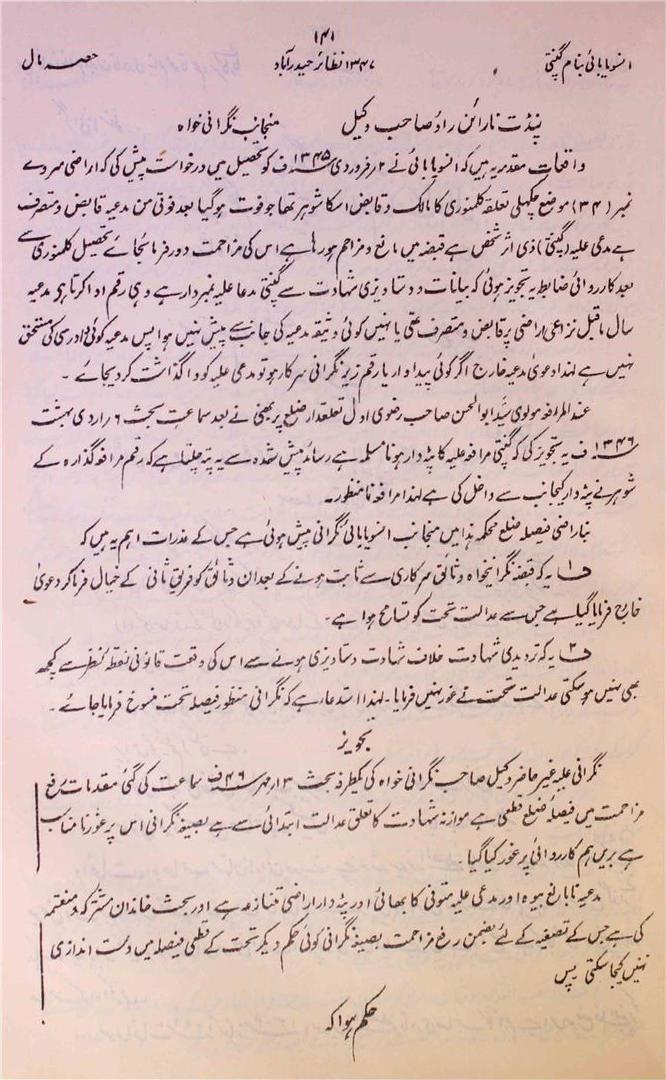 ۱۴۱
انسویابائی بنام گنپتی
۱۳۴۷ نظائر حیدرآباد
حصہ مال
پنڈت نارائن راؤ صاحب وکیل منجانب نگرانی خواہ
واقعات مقدمہ یہ ہیں کہ انسویابائی نے ۲؍فروردی ۱۳۴۵ف کو تحصیل میں درخواست پیش کی کہ اراضی سروے
نمبر (۳۴) موضع چکہلی تعلقہ کلمنوری کا مالک و قابض اسکا شوہر تھا جو فوت ہوگیا بعد فوتی من مدعیہ قابض و متصرف
ہے مدعی علیہ (گنپتی) ذی اثر شخص ہے قبضہ میں مانع و مزاحم ہو رہا ہے اس کی مزاحمت دور فرمائجائے تحصیل کلمنوری سے
بعد کارروائی ضابطہ یہ تجویز ہوئی کہ بیانات و دستاویزی شہادت سے گنپتی مدعا علیہ نمبردار ہے وہی رقم ادا کرتا ہے مدعیہ
سال ماقبل نزاعی اراضی پر قابض و متصرف تھی یا نہیں کوئی وثیقہ مدعیہ کی جانب سے پیش نہیں ہوا پس مدعیہ کوئی دادرسی کی مستحق
نہیں ہے لہذا دعویٰ مدعیہ خارج اگر کوئی پیداوار یا رقم زیر نگرانی سرکار ہو تو مدعی علیہ کو واگذاشت کردیجائے ۔
عند المرافعہ مولوی سید ابوالحسن صاحب رضوی اول تعلقدار ضلع پربھنی نے بعد سماعت بحث ۶؍اردی بہشت
۱۳۴۶ف یہ تجویز کی کہ گنپتی مرافعہ علیہ کا پٹہ دار ہونا مسلمہ ہے رسائد پیش شدہ سے یہ پتہ چلتا ہے کہ رقم مرافعہ گذارہ کے
شوہر نے پٹہ دار کیجانب سے داخل کی ہے لہذا مرافعہ نامنظور ۔
بناراضی فیصلہ ضلع محکمہ ہذا میں منجانب انسویابائی نگرانی پیش ہوئی ہے جس کے عذرات اہم یہ ہیں کہ
ف۱ یہ کہ قبضہ نگرانیخواہ وثائق سرکاری سے ثابت ہونے کے بعد ان وثائق کو فریق ثانی کے خیال فرما کر دعویٰ
خارج فرمایا گیا ہے جس سے عدالت تحت کو تسامح ہوا ہے ۔
ف۲ یہ کہ تردیدی شہادت خلاف شہادت دستاویزی ہونے سے اس کی وقعت قانونی نقطہ نظر سے کچھ
بھی نہیں ہوسکتی عدالت تحت نے غور نہیں فرمایا ۔ لہذا استدعا ہے کہ نگرانی منظور فیصلہ تحت منسوخ فرمایا جائے ۔
تجویز
نگرانی علیہ غیر حاضر وکیل صاحب نگرانی خواہ کی یکطرفہ بحث ۱۳؍مہر ۴۶ف سماعت کی گئی مقدمات رفع
مزاحمت میں فیصلہ ضلع قطعی ہے موازنہ شہادت کا تعلق عدالت ابتدائی سے ہے بصیغہ نگرانی اس پر غور نامناسب
ہے بریں ہم کارروائی پر غور کیا گیا ۔
مدعیہ نابالغ بیوہ اور مدعی علیہ متوفی کا بھائی اور پٹہ دار اراضی متنازعہ ہے اور بحث خاندان مشترکہ و منقسمہ
کی ہے جس کے تصفیہ کے لئے بضمن رفع مزاحمت بصیغہ نگرانی کوئی حکم دیکر تحت کے قطعی فیصلہ میں دست اندازی
نہیں کیجاسکتی پس
حکم ہوا کہ